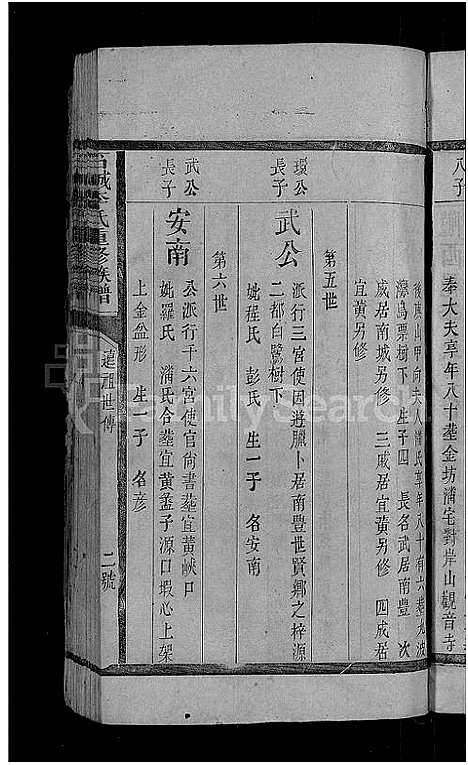 八子
奉大夫享年八十塟金坊浦宅對岸山觀音寺
後康山甲向夫人潘氏享年八十有六塟九波
瀑鳥栗樹下 生子四 長名武居南豐 次
威居南城另修 三戚居宜黃另修 四咸居
宜黃另修
第五世
環公
長子
武公
派行三宮使因遊臘卜居南豐世賢鄉之梓源
二都白鷺樹下
妣程氏 彭氏 生一子 名安南
第六世
武公
長子
安南
公派行千六宮使官尚書塟宜黃峽口
妣羅氏 潘氏合塟宜黃孟子源口瑕心上架
上金盆形 生一子 名彥
石城李氏重修族譜
遠祖世傳
二號
FamilySearch